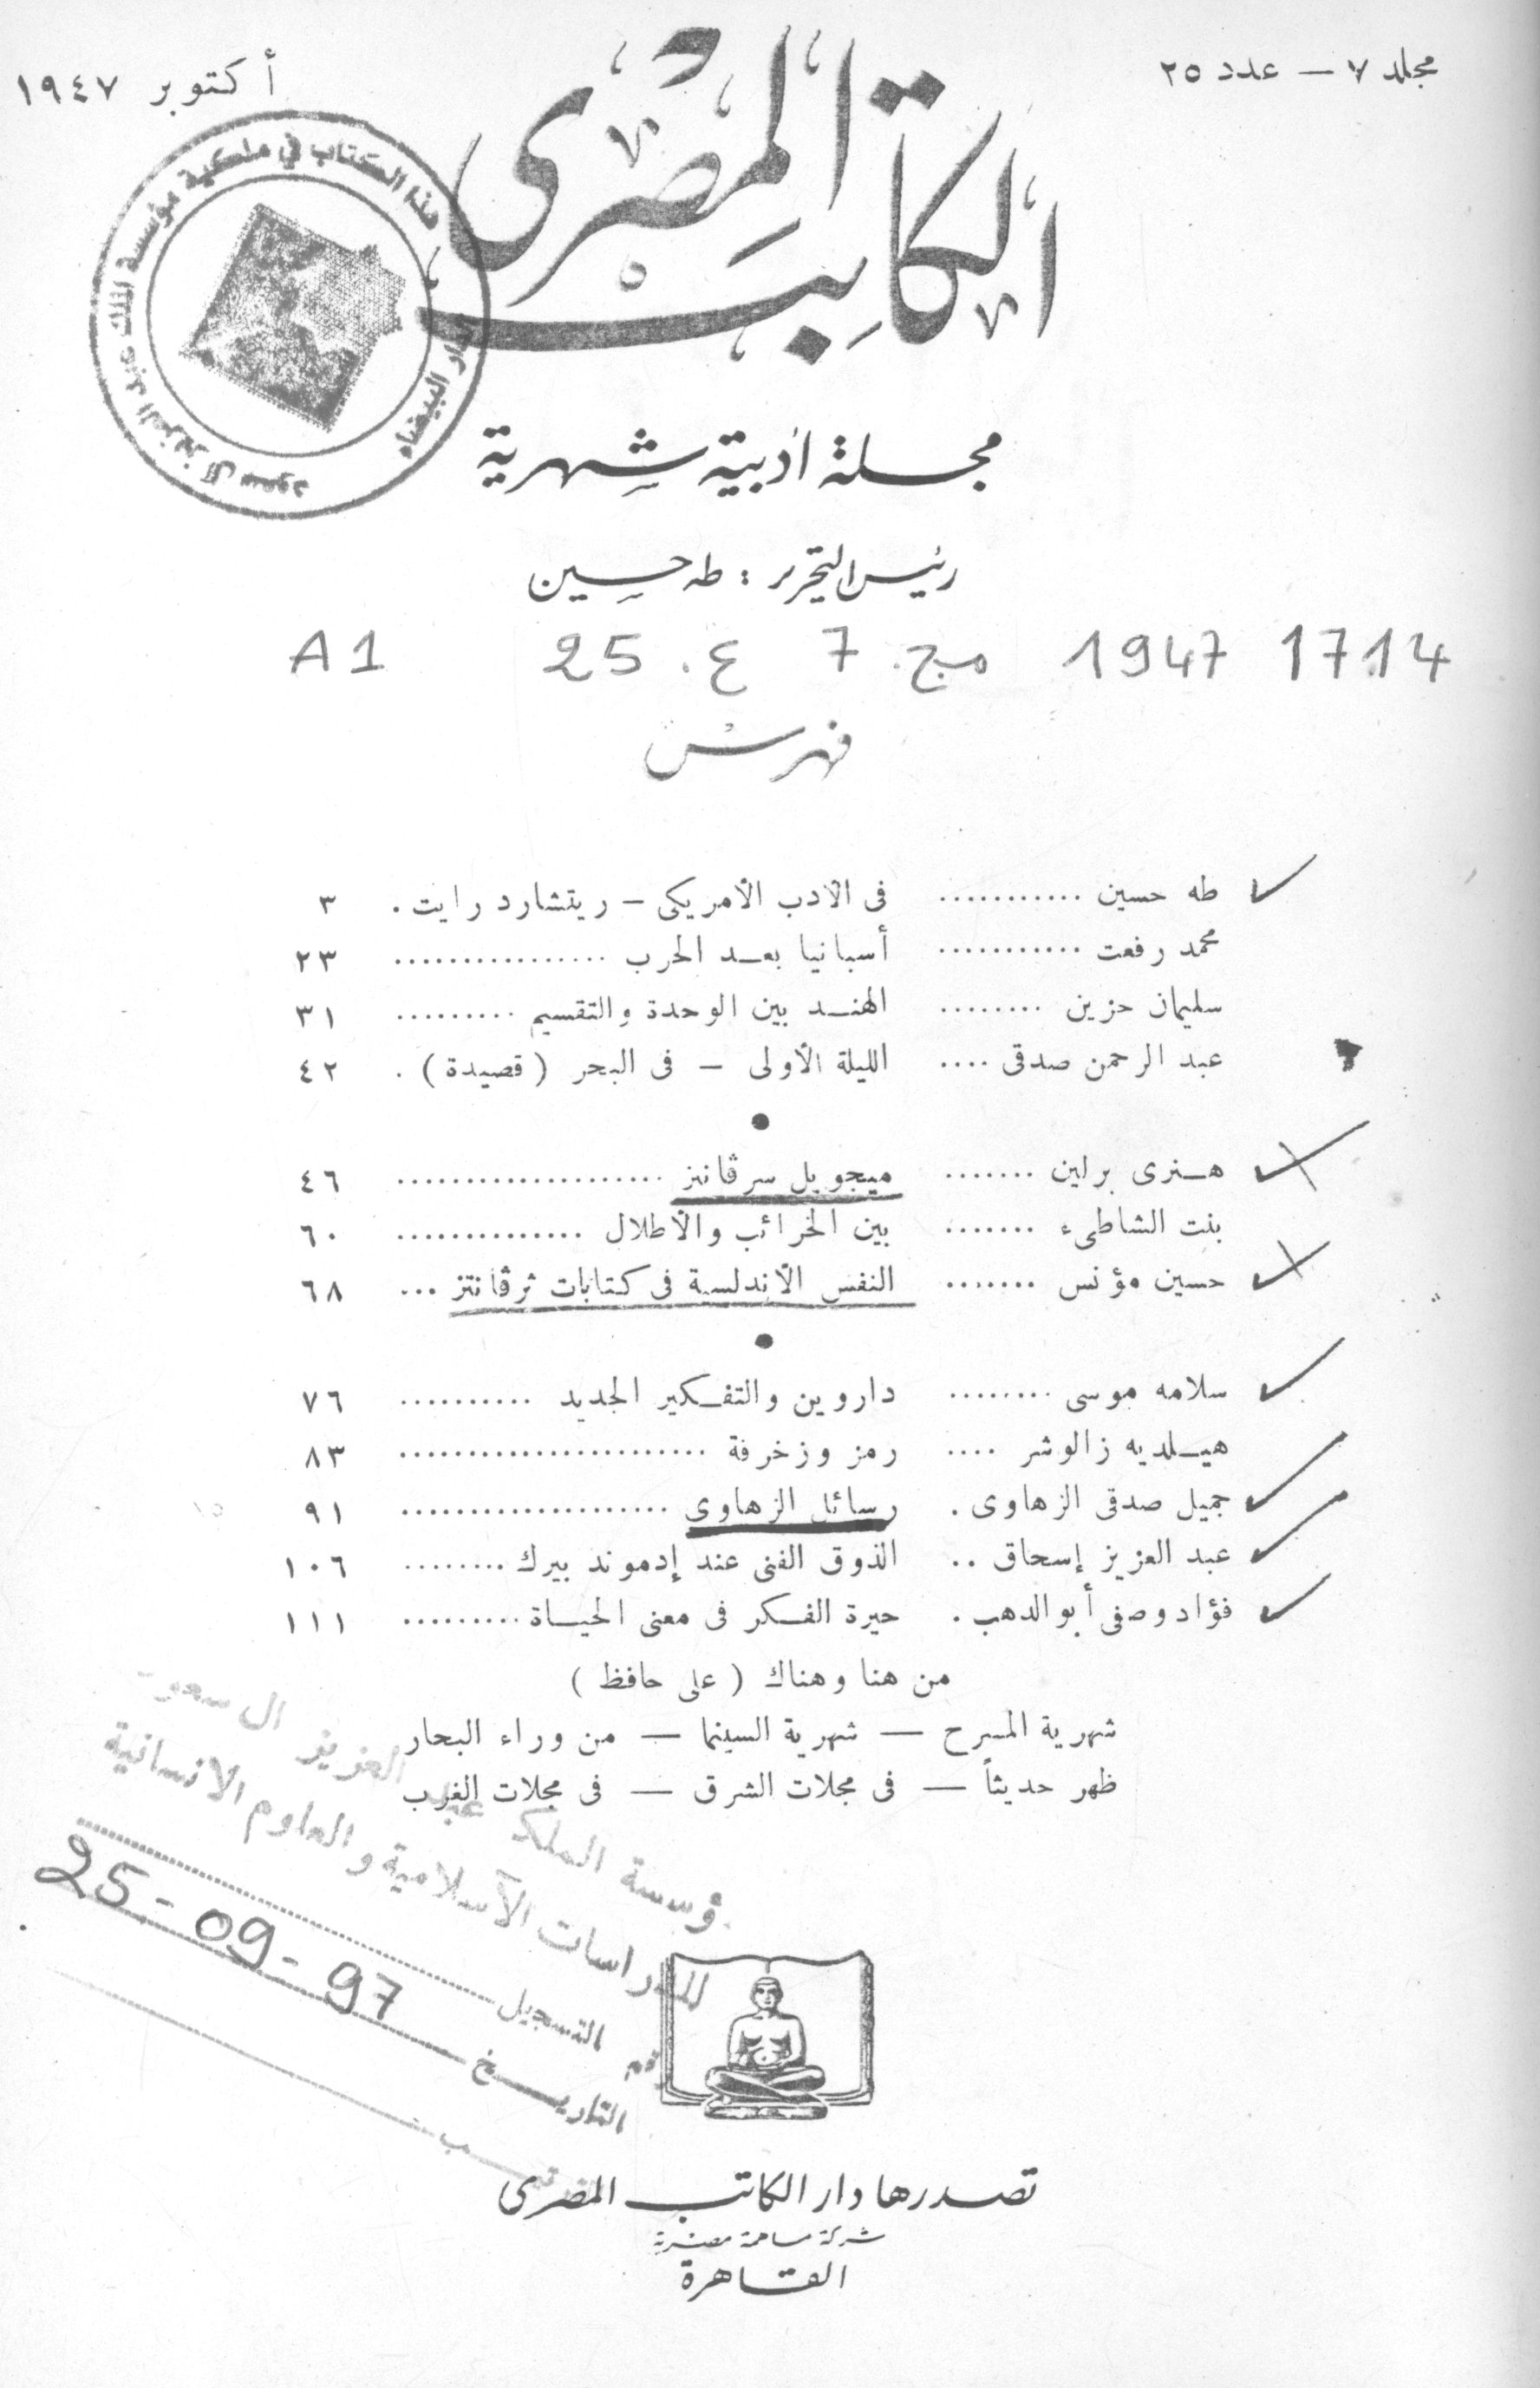 مجلد ٧ – عدد ٢٥
أكتوبر ١٩٤٧
الكاتب المصرى
هذا الكتاب في ملكية مؤسسة الملك عبد العزيز آل سعود
الدار البيضاء
مجلة أدبية شهرية
رئيس التحرير : طه حسين
1714 1947 مج. 7 ع. 25 A1
فهرس
طه حسين ........... فى الأدب الأمريكى – ريتشارد رايت . ٣
محمد رفعت ........... أسبانيا بعد الحرب ................ ٢٣
سليمان حزين ........ الهند بين الوحدة والتقسيم ......... ٣١
عبد الرحمن صدقى .... الليلة الأولى – فى البحر ( قصيدة ) . ٤٢
هنرى برلين ....... ميجويل سرڤانتز .................... ٤٦
بنت الشاطىء ....... بين الخرائب والأطلال .............. ٦٠
حسين مؤنس ....... النفس الأندلسية فى كتابات ثرڤانتز ... ٦٨
سلامه موسى ........ داروين والتفكير الجديد .......... ٧٦
هيلديه زالوشر .... رمز وزخرفة ....................... ٨٣
جميل صدقى الزهاوى . رسائل الزهاوى .................... ٩١
عبد العزيز إسحاق .. الذوق الفنى عند إدموند بيرك ........ ١٠٦
فؤاد وصفى أبو الدهب . حيرة الفكر فى معنى الحياة ......... ١١١
من هنا وهناك ( على حافظ )
شهرية المسرح — شهرية السينما — من وراء البحار
ظهر حديثاً — فى مجلات الشرق — فى مجلات الغرب
مؤسسة الملك عبد العزيز آل سعود
للدراسات الاسلامية والعلوم الانسانية
رقم التسجيل
التاريخ 25-09-97
تصدرها دار الكاتب المصرى
شركة مساهمة مصرية
القاهرة